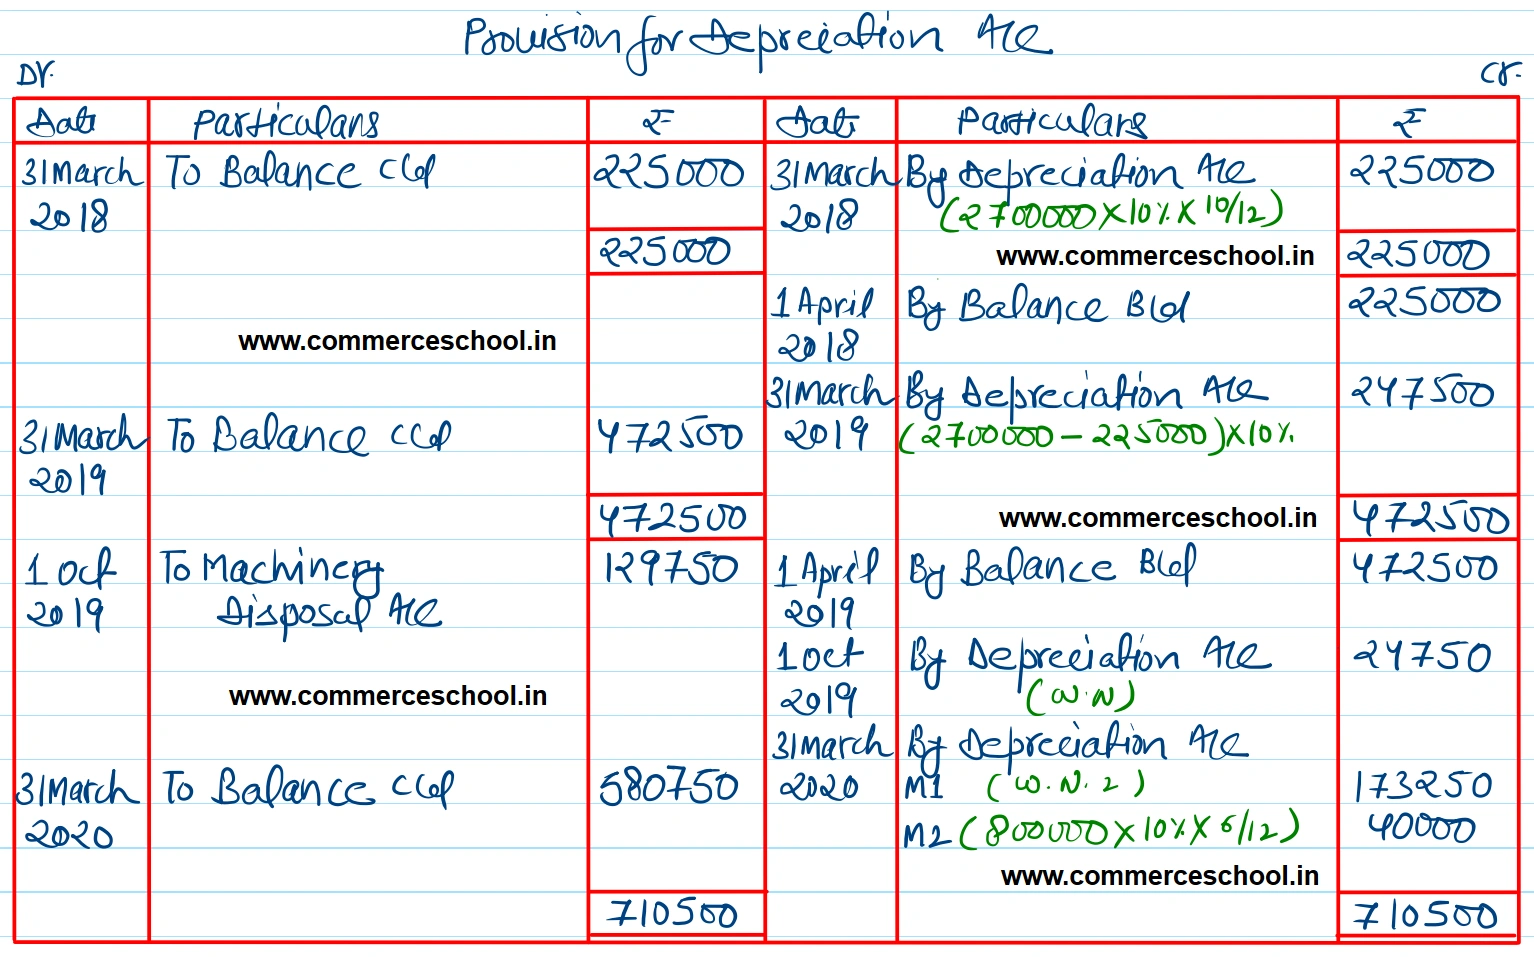 Provision for Depreciation A/c
Dr.
Cr.
Date Particulars ₹ Date Particulars ₹
31 March To Balance c/d 225000 31 March By Depreciation A/c 225000
2018 2018 (2700000 X 10% X 10/12)
225000 www.commerceschool.in 225000
1 April By Balance B/d 225000
www.commerceschool.in 2018
31 March By Depreciation A/c 247500
31 March To Balance c/d 472500 2019 (2700000 - 225000) X 10%
2019
472500 www.commerceschool.in 472500
1 Oct To Machinery 129750 1 April By Balance B/d 472500
2019 Disposal A/c 2019
1 Oct By Depreciation A/c 24750
www.commerceschool.in 2019 (W.N)
31 March By Depreciation A/c
31 March To Balance c/d 580750 2020 M1 (W.N. 2) 173250
2020 M2 (800000 X 10% X 6/12) 40000
www.commerceschool.in
710500 710500